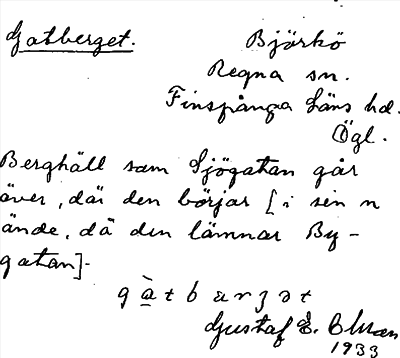 Gatberget.
Björkö
Regna sn.
Finspånga Läns hd.
Ögl.
Berghäll som Sjögatan går
över, där den börjar [i sin n
ände, då den lämnar By-
gatan].
Gustaf E.
1933